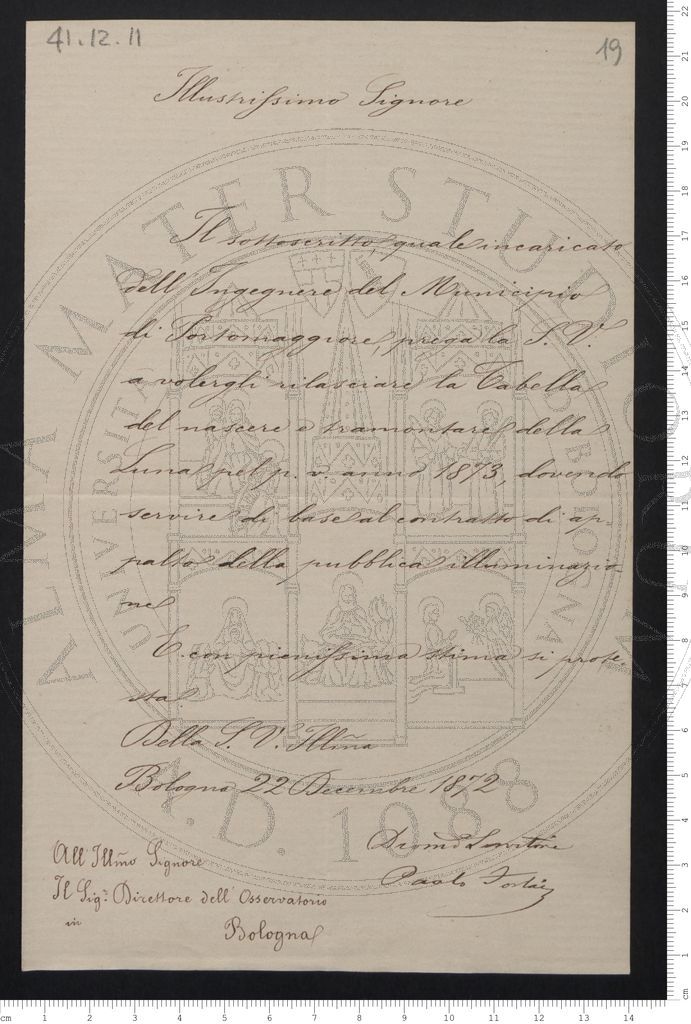 41.12.11
19
Illustrissimo Signore
Il sottoscritto, quale incaricato
dell'Ingegnere del Municipio
di Portomaggiore, prega la S. V.
a volergli rilasciare la Tabella
del nascere e tramontare della
Luna pel p. v. anno 1873, dovendo
servire di base al contratto di ap-
palto della pubblica illuminazio-
ne
E con pienissima stima si prote-
sta.
Della S. V. Illma
Bologna 22 Decembre 1872
Servitore
Paolo
All'Illmo Signore
Il Sigr. Direttore dell'Osservatorio
in
Bologna
ALMA MATER STUDIORUM
A.D. 1088